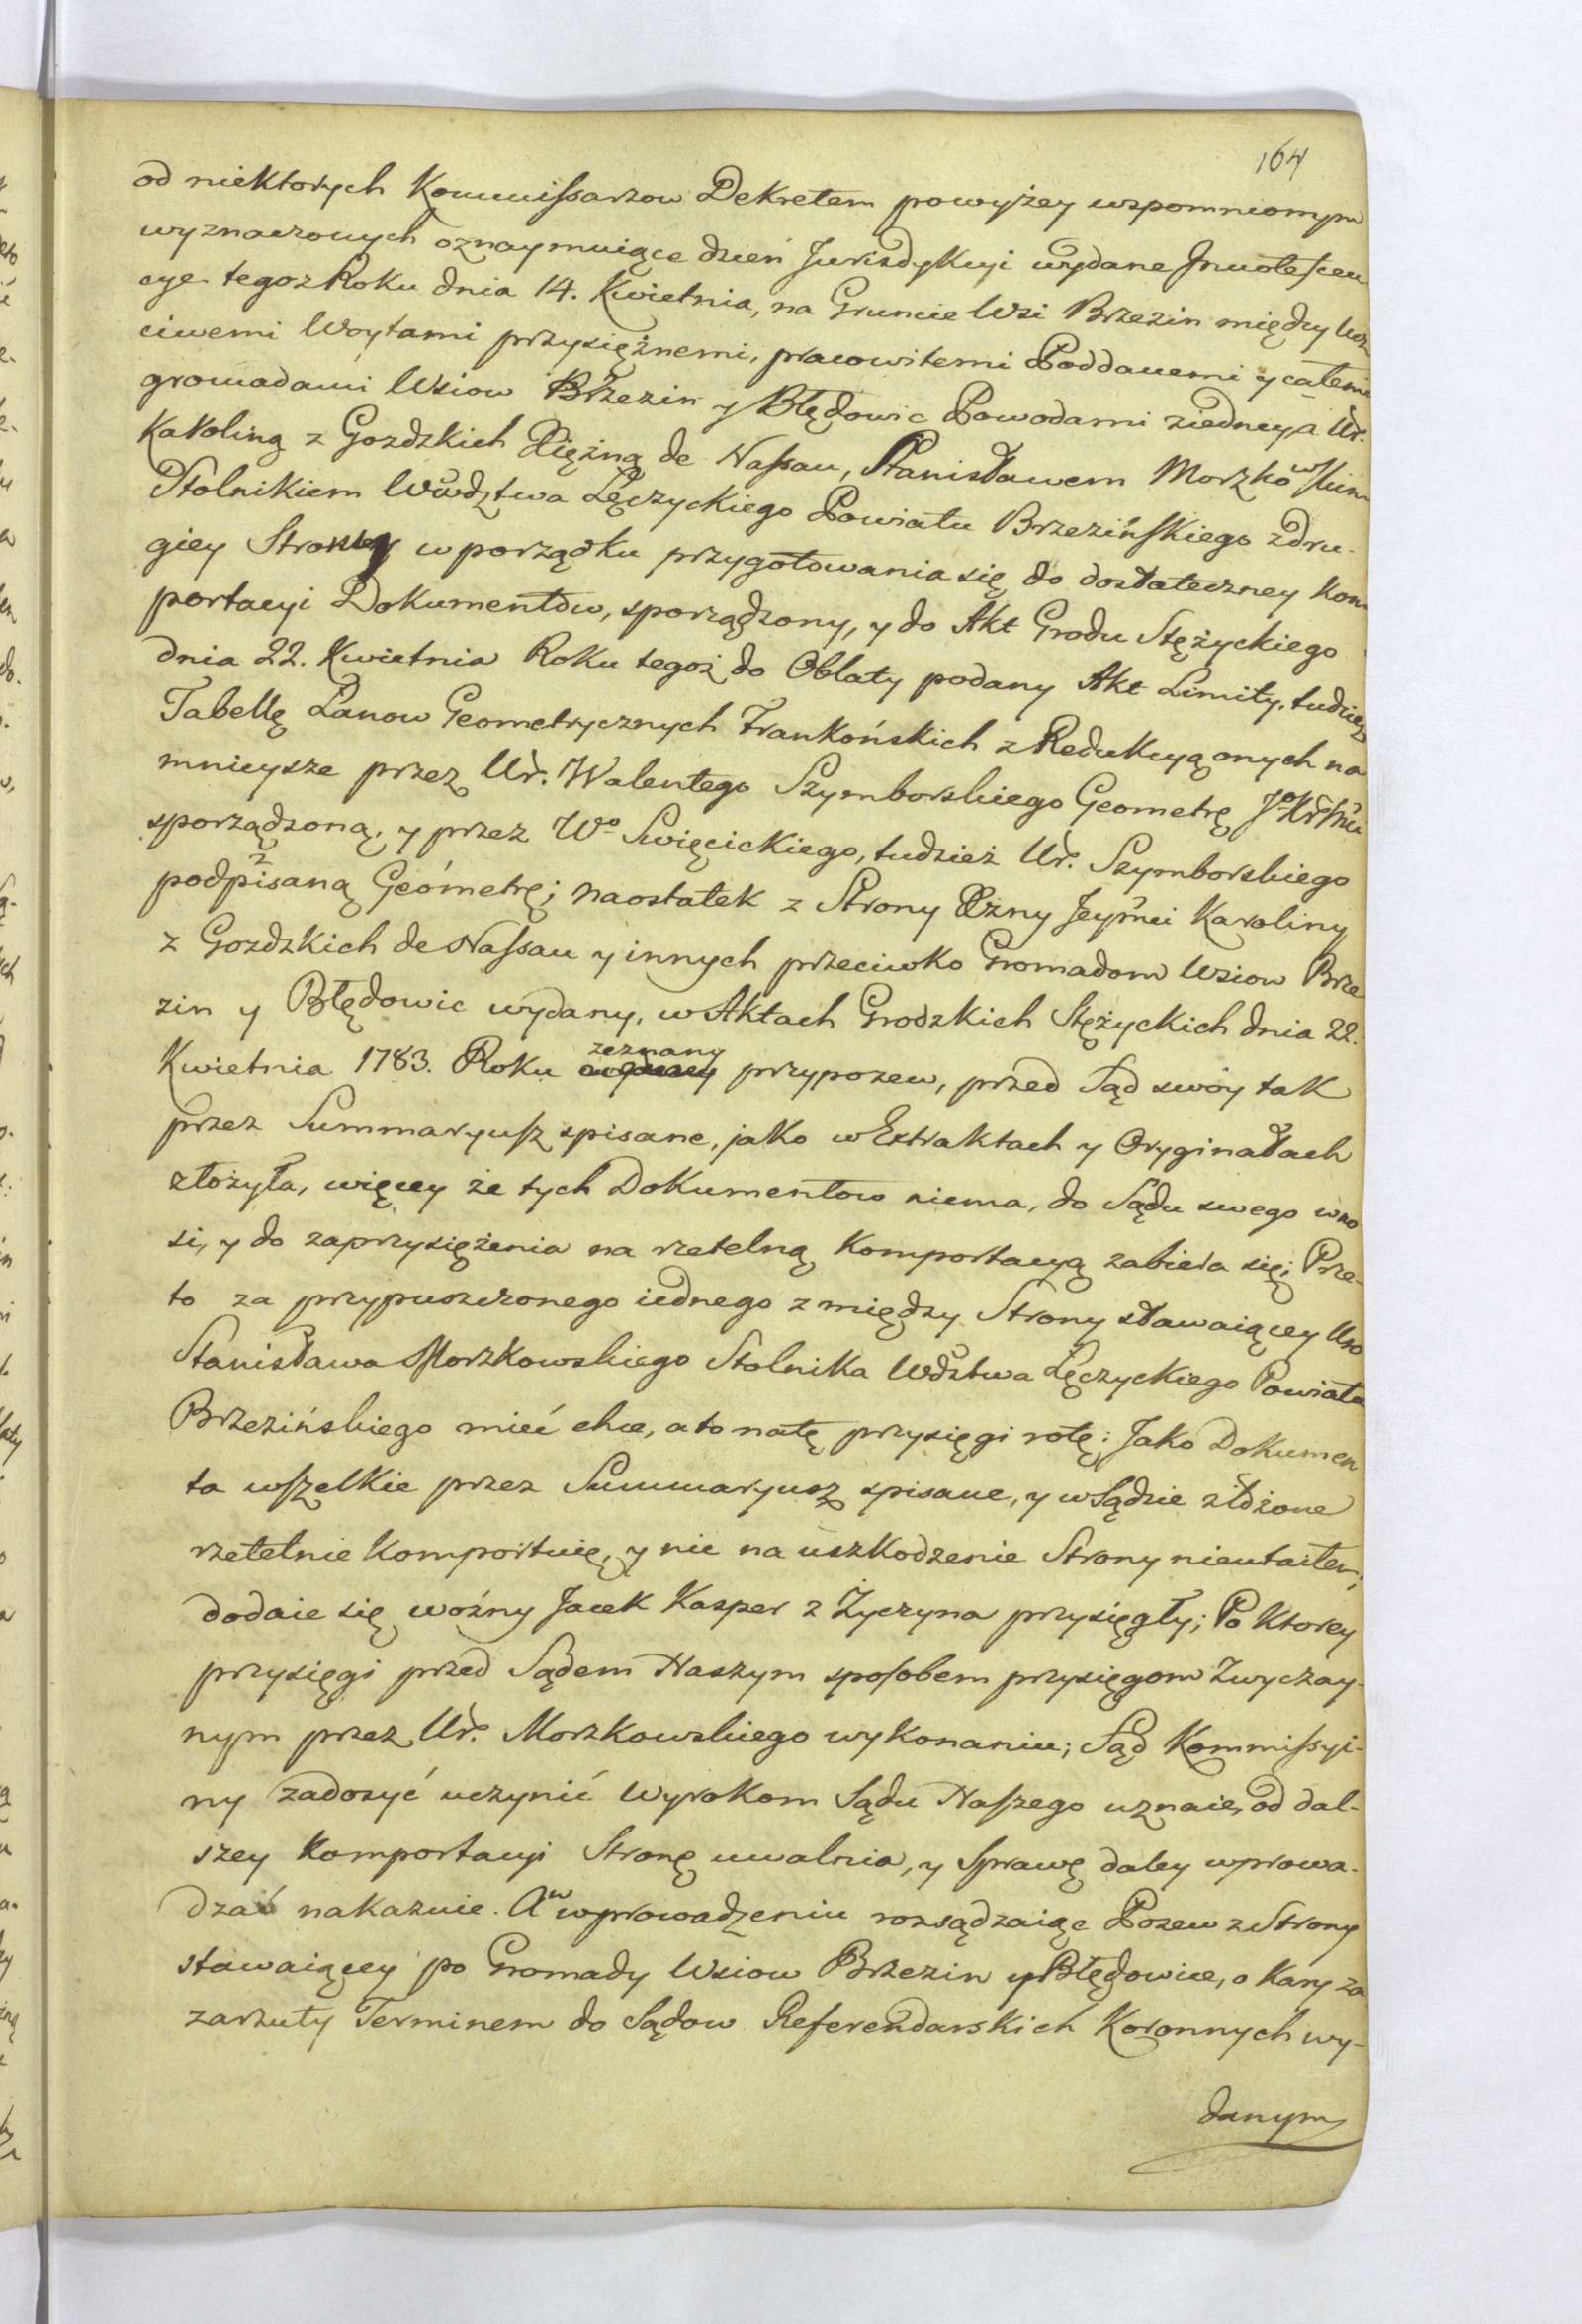 164
od niektorych Kommissarzow Dekretem powyżey wspomnionym
wyznaczonych oznaymuiące dzień Jurisdykcyi wydane Jnnotescen
cye tegoz Roku dnia 14. Kwietnia, na Gruncie Wsi Brzezin między Ucz
ciwemi Woytami przysiężnemi, pracowitemi Poddanemi y całemi
gromadami Wsiow Brzezin y Błędowic Powodami ziedney a Ur.
Karoling z Gozdzkich Xiężną de Nassau, Stanisławem Morzkowskim
Stolnikiem Wdztwa Łęczyckiego Powiatu Brzezińskiego zdru-
giey Strony w porządku przygotowania się do dostateczney kom
portacyi Dokumentow, sporządzony, y do Akt Grodu Stężyckiego
dnia 22. Kwietnia Roku tegoż do Oblaty podany Akt Limity, tudzież
Tabellę Łanow Geometrycznych Frankońskich z Redukcyą onych na
mnieysze przez Ur. Walentego Szymborskiego Geometrę
sporządzoną, y przez Wo Swięcickiego, tudzież Ur. Szymborskiego
podpisaną Geómetrę; naostatek z Strony Xżny Jeymci Karoliny
z Gozdzkich de Nassau y innych przeciwko Gromadom Wsiow Brze
zin y Błędowic wydany, w Aktach Grodzkich Stężyckich dnia 22.
Kwietnia 1783. Roku zeznany przypozew, przed Sąd swóy tak
przez Summaryusz spisane, jako w Extraktach y Oryginałach
złożyła, więcey że tych Dokumentow niema, do Sądu swego wno
si, y do zaprzysiężenia na rzetelną komportacyą zabiera się; Prze-
to za przypuszczonego iednego z między Strony stawaiącey Uro
Stanisława Morzkowskiego Stolnika Wdztwa Łęczyckiego Powiatu
Brzezińskiego mieć chce, a to natę przysięgi rotę: Jako Dokumen
ta wszelkie przez Summaryusz spisane, y w Sądzie złożone
rzetelnie komportuię, y nic na uszkodzenie Strony nieutaiłem,
dodaie się woźny Jacek Kasper z Życzyna przysięgły; Po ktorey
przysięgi przed Sądem Naszym sposobem przysięgom zwyczay-
nym przez Ur. Morzkowskiego wykonaniu; Sąd Kommissyi-
ny zadosyć uczynić wyrokom Sądu Naszego uznaie, od dal-
szey komportacyi Stronę uwalnia, y Sprawę daley wprowa-
dzać nakazuie. A w wprowadzeniu rozsądzaiąc Pozew z Strony
stawaiącey po Gromady Wsiow Brzezin y Błędowice, o kary za
zarzuty Terminem do Sądow Referendarskich Koronnych wy-
danym